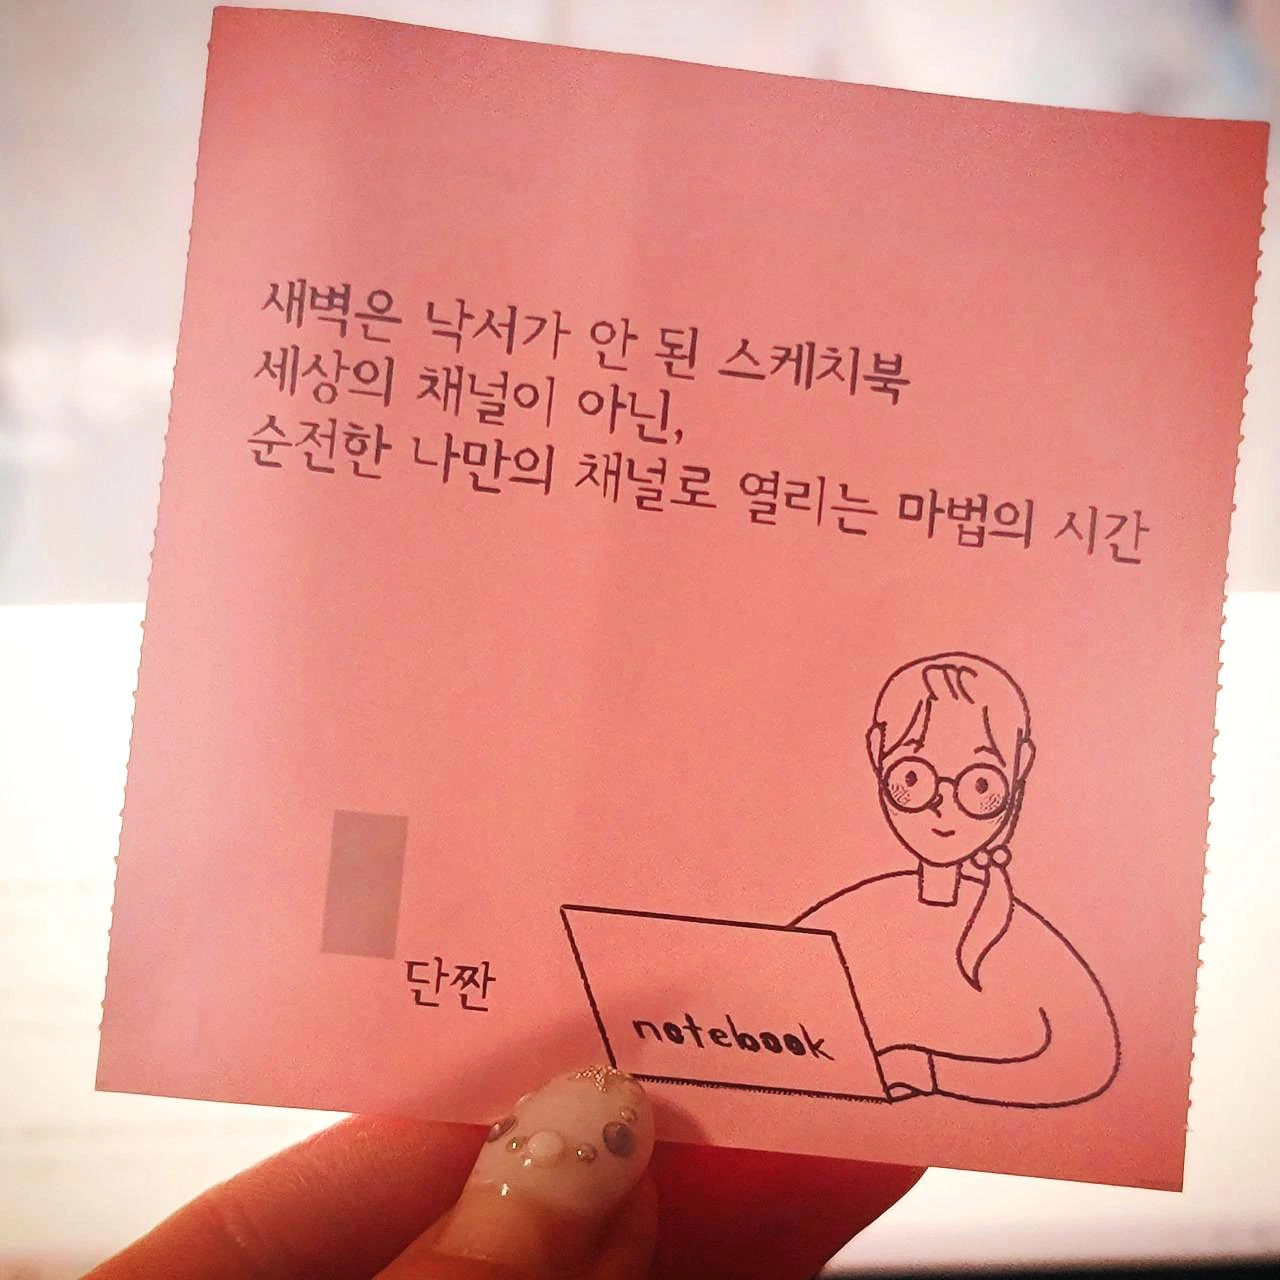 새벽은 낙서가 안 된 스케치북
세상의 채널이 아닌,
순전한 나만의 채널로 열리는 마법의 시간
단짠
notebook